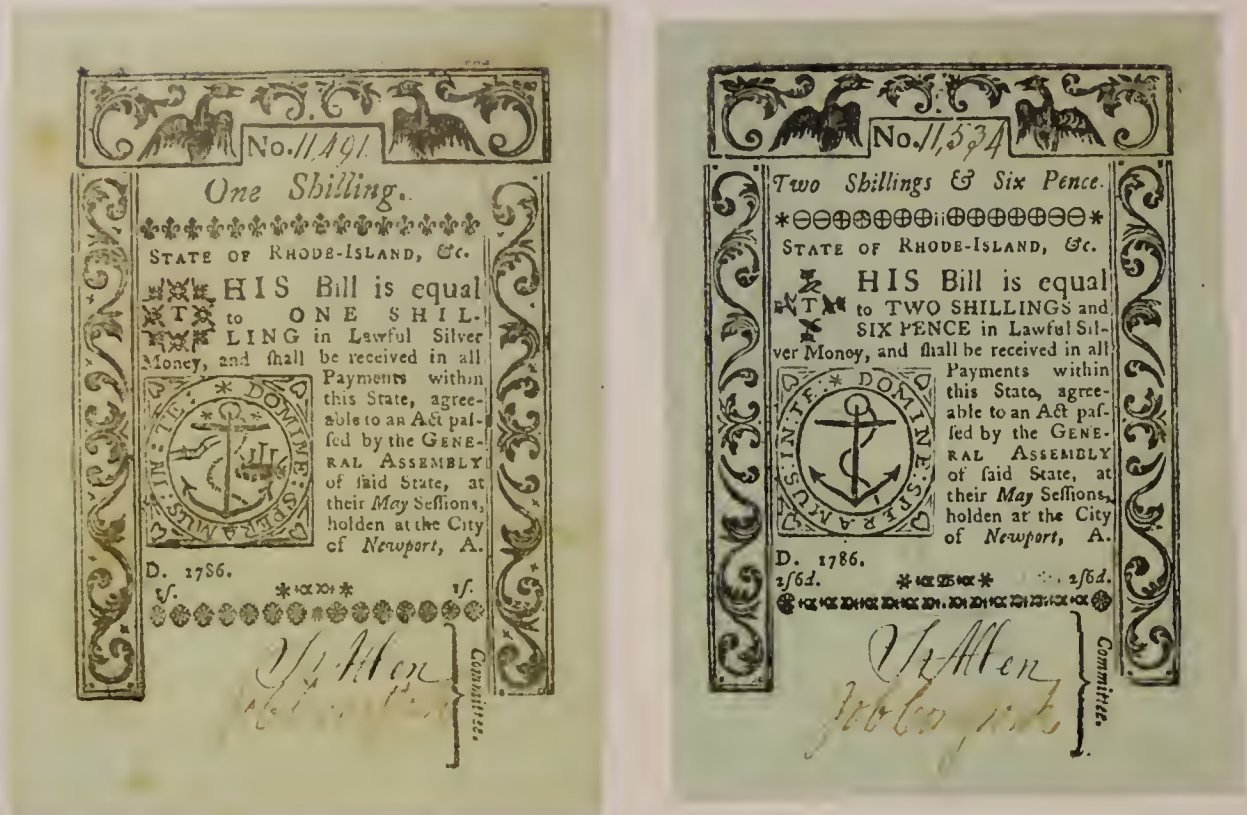 No. 11,491
One Shilling.
STATE OF RHODE-ISLAND, &c.
THIS Bill is equal
to ONE SHIL-
LING in Lawful Silver
Money, and ſhall be received in all
Payments within
this State, agree-
able to an Act paſ-
ſed by the GENE-
RAL ASSEMBLY
of ſaid State, at
their May Seſſions,
holden at the City
of Newport, A.
D. 1786.
IN : TE : * DOMINE : SPERAMUS :
1ſ. 1ſ.
Committee.
No. 11,534
Two Shillings & Six Pence.
STATE OF RHODE-ISLAND, &c.
THIS Bill is equal
to TWO SHILLINGS and
SIX PENCE in Lawful Sil-
ver Monoy, and ſhall be received in all
Payments within
this State, agree-
able to an Act paſ-
ſed by the GENE-
RAL ASSEMBLY
of ſaid State, at
their May Seſſions,
holden at the City
of Newport, A.
D. 1786.
IN : TE : * DOMINE : SPERAMUS :
2ſ6d. 2ſ6d.
Committee.